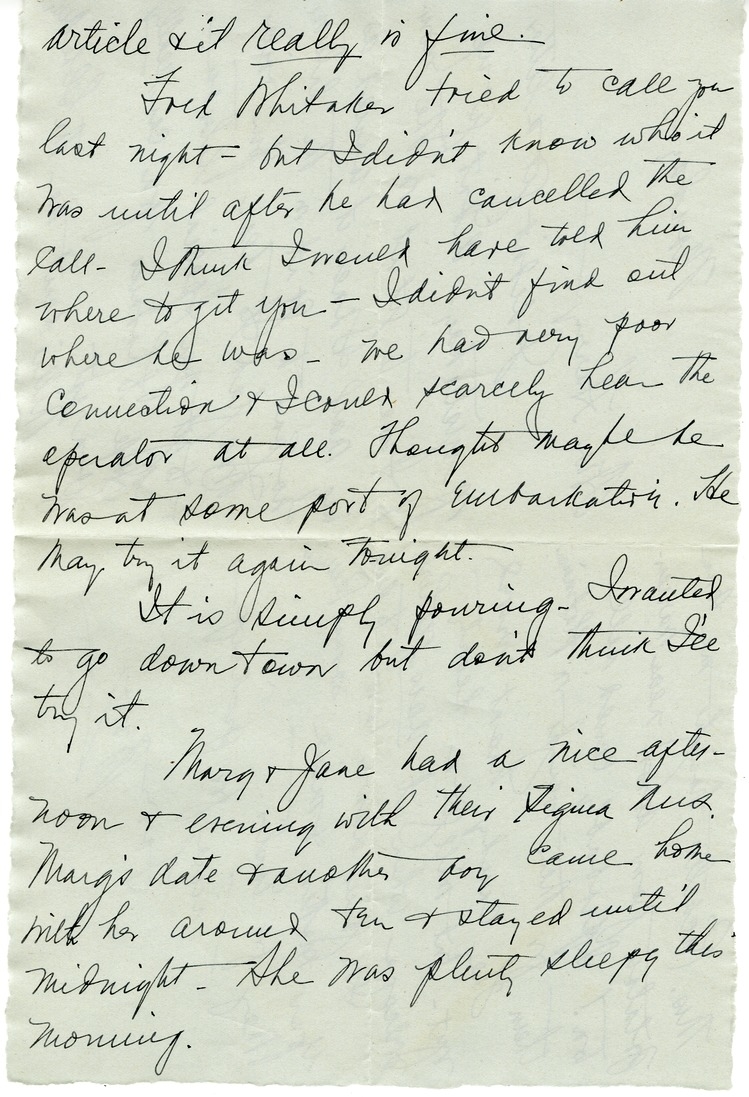 article & it really is fine.
Fred Whitaker tried to call you
last night – but I didn't know who it
was until after he had cancelled the
call – I think I would have told him
where to get you – I didn't find out
where he was – we had very poor
connection & I could scarcely hear the
operator at all. Thought maybe he
was at some port of embarkation. He
may try it again tonight.
It is simply pouring – I wanted
to go down town but don't think I'll
try it.
Marg & Jane had a nice after-
noon & evening with their Sigma Nus.
Marg's date & another boy came home
with her around ten & stayed until
midnight – She was plenty sleepy this
morning.